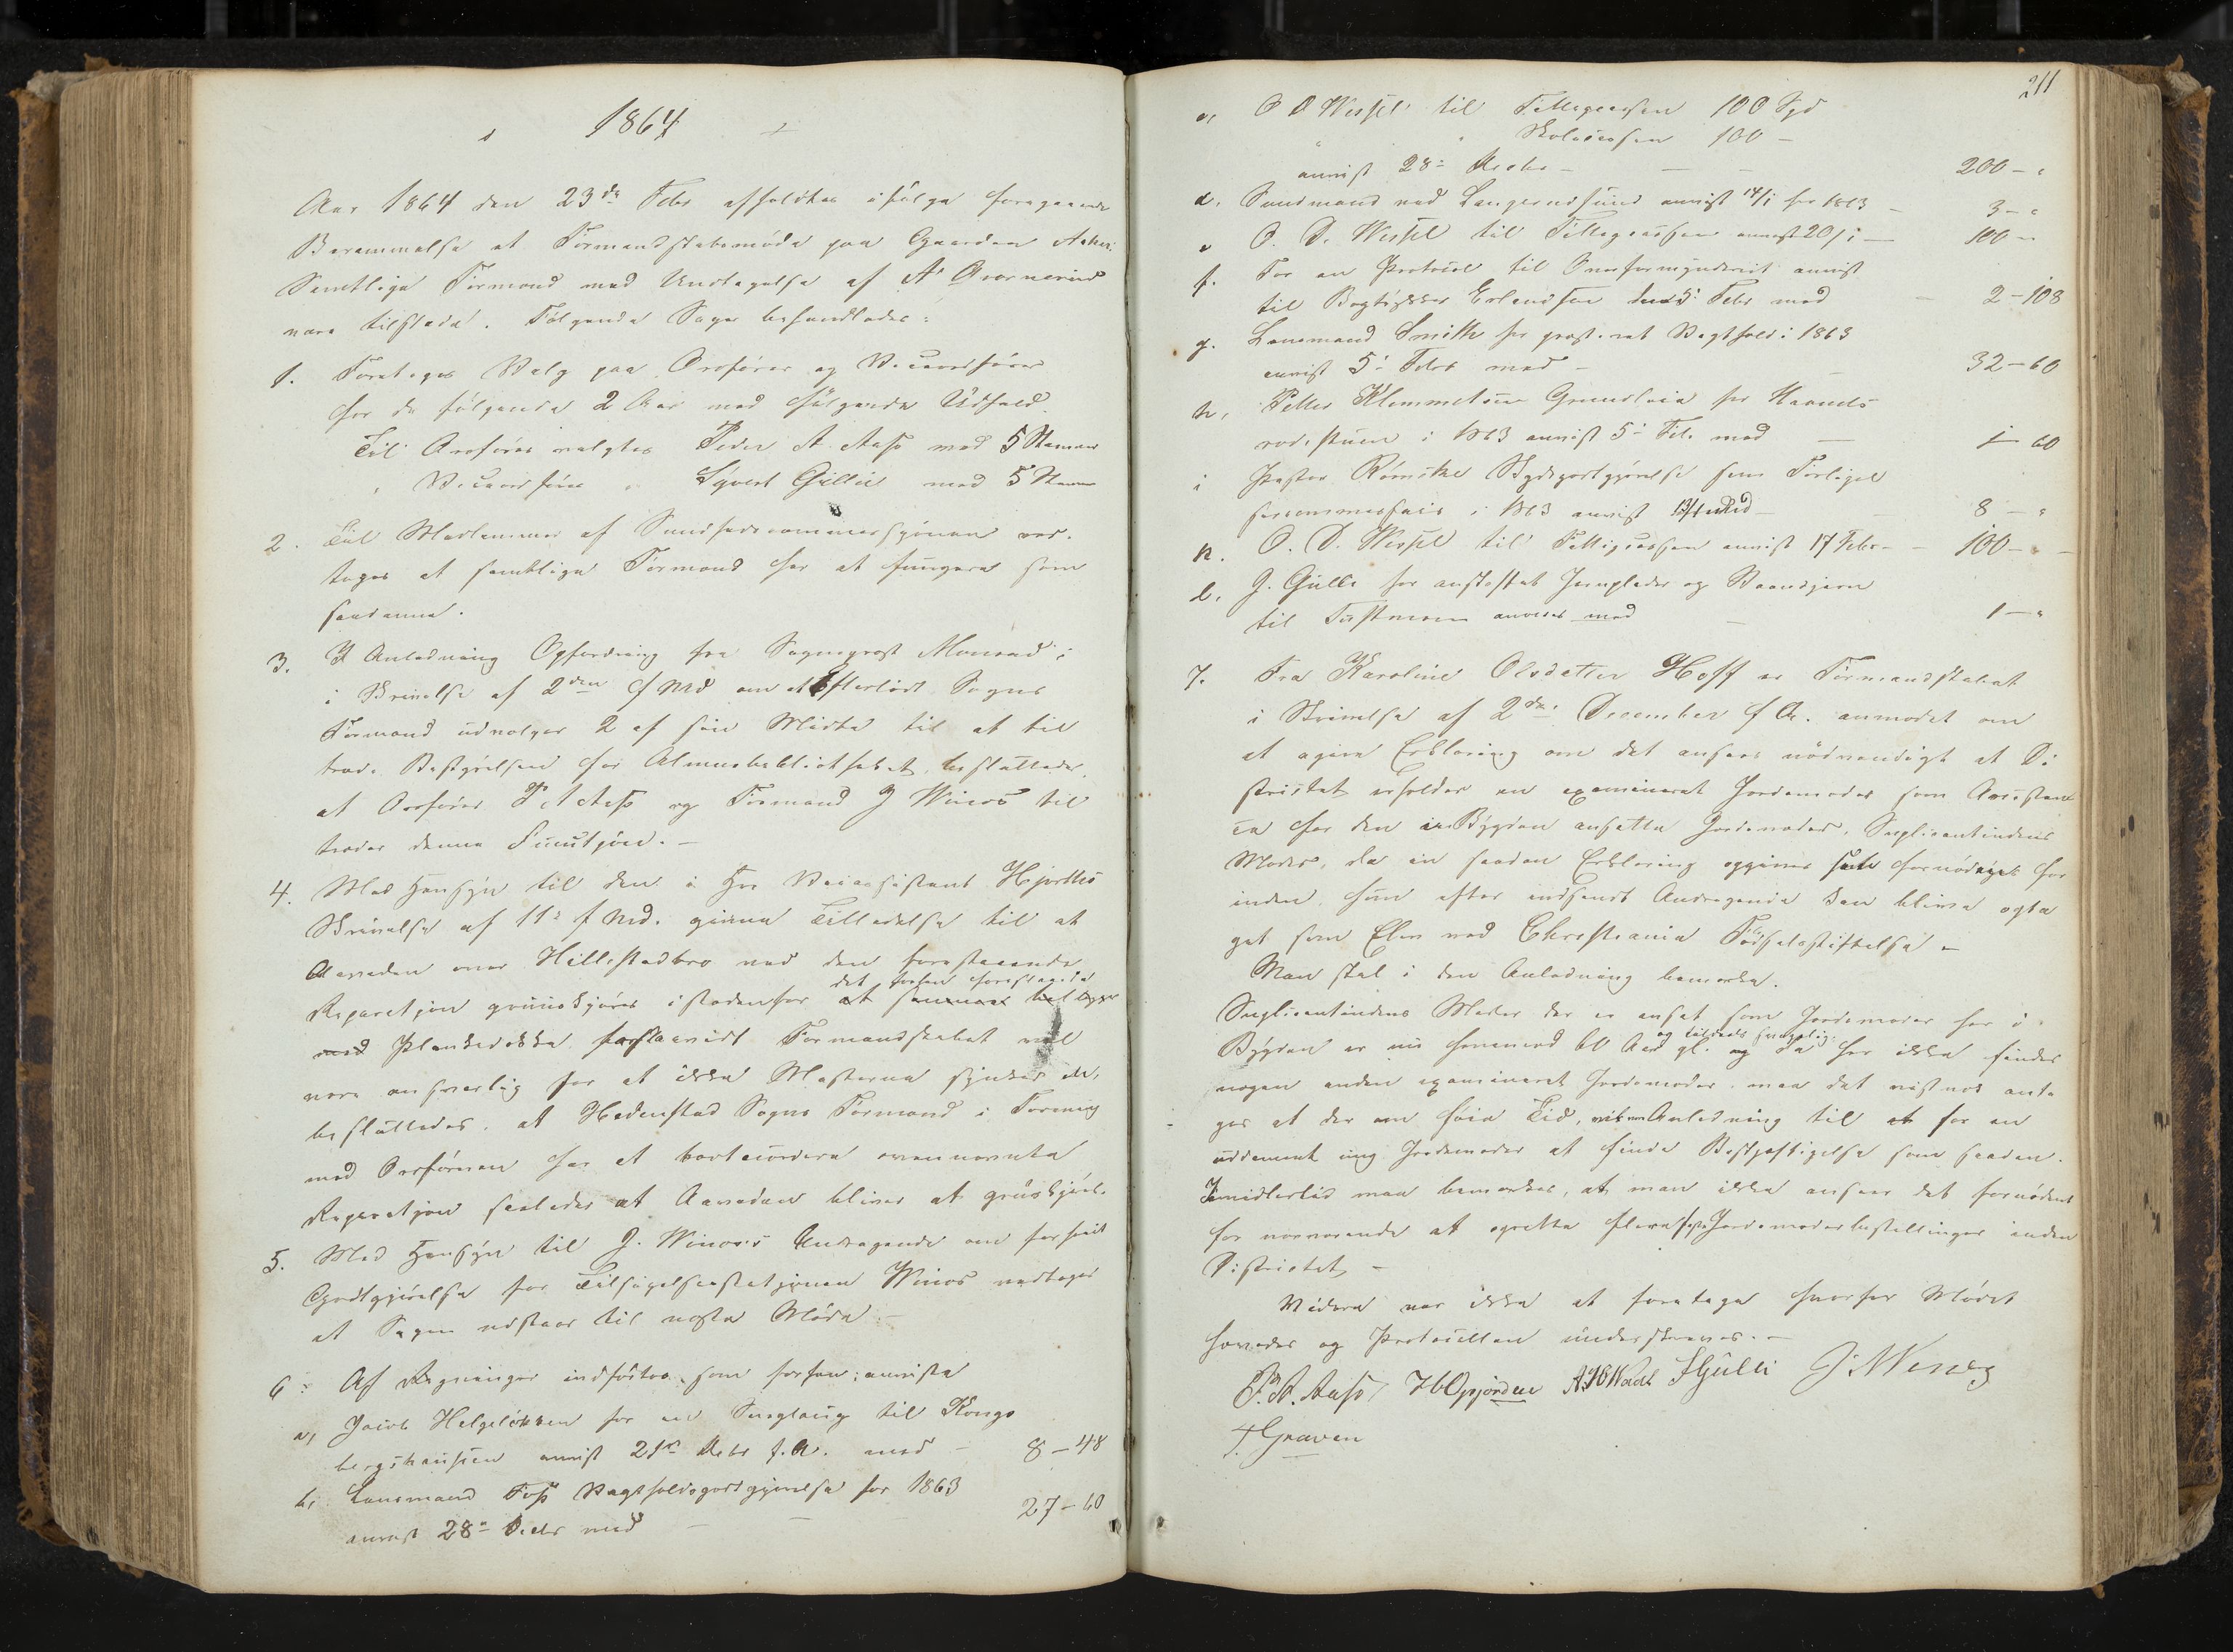 1864
Aar 1864 den 23de Febr afholdtes ifølge foregaaende
Berammelse et Formandskabsmøde paa Gaarden
Samtlige Formænd med Undtagelse af
vare tilstede. Følgende Sager behandledes:
1. Foretoges Valg paa Ordfører og Viceordfører
for de følgende 2 Aar med følgende Udfald.
Til Ordfører valgtes Peder A. Aass med 5 Stemmer
" Viceordfører " Syvert Gulli med 5 Stemmer
2. Til Medlemmer af Sundhedscommissjonen ved-
toges at samtlige Formænd har at fungere som
saadanne.
3. I Anledning Opfordring fra Sogneprest Monrad i
i Skrivelse af 2den f Md om at Efterlødt Sogns
Formænd udvælger 2 af sin Midte til at til
træde Bestyrelsen for Almuebibliotheket, besluttedes,
at Ordfører P A Aass og Formand J Winæs til
træder denne Function. -
4. Med Hensyn til den i Hr Veiassistent Hjorths
Skrivelse af 11te f Md. givne Tilladelse til at
over Hillestadbro ved den forestaaende
det forhen foreslagede
Reparetjon gruuskjøres istedenfor at
med Plankedække forsaavidt Formandskabet vil
være ansvarlig for at ikke Masterne synker
besluttedes, at Hedenstad Sogns Formænd i Forening
med Ordføreren har at bortaccordere ovennævnte
Reparetjon saaledes at bliver at gruuskjøre.
5. Med Hensyn til J. Winæs's Andragende om forhøiet
Godtgjørelse for Tilsigelsesstatjonen Winæs vedtoges
at Sagen udstaar til næste Møde. -
6: Af Regninger indførtes som forhen anviste
a, Jacob Helgeløkken for en til Kongs
anvist 21de Decbr f.A. med - 8 - 48
b, Lensmand Foss Vagtholdsgodtgjørelse for 1863
anvist 28de Decbr med - - 27 - 60
211
c, O D Wessel til Fattigcassen 100 Spd
" " Skolecassen 100 -
anvist 28de Decbr - - - 200 - "
d, Sundmand ved Langerudsund anvist 14/1 for 1863 - 3 - "
e O. D. Wessel til Fattigcassen anvist 20/1 - 100 -
f. For en Protocol til Overformynderiet anvist
til Bogtrykker Erlendsen den 5te Febr med - 2 - 108
g. Lensmand Smith for Vagthold i 1863
anvist 5te Febr med - - 32 - 60
h, Petter Klemmetsen Grundleie for
i 1863 anvist 5te Feb. med - 1 - 60
i Pastor Rømcke Skydsgodtgjørelse som Forligel
i 1863 anvist med - 8 - "
k. O. D. Wessel til Fattigcassen anvist 17 Febr - - 100 - "
l, G. Gulli for anskaffet Jernplader og Baandjern
til anvises med - 1 - "
7. Fra Karoline Olsdatter Hoff er Formandskabet
i Skrivelse af 2den December f A. anmodet om
at afgive Erklæring om det ansees nødvendigt at Di
strictet erholder en examineret Jordemoder som Assistent
for den i Bygden ansatte Jordemoder, Suplicantindens
Moder, da en saadan Erklæring opgives som fornødiget for
inden hun efter indsendt Andragende kan blive opta
get som Elev ved Christiania Fødselsstiftelse -
Man skal i den Anledning bemærke.
Suplicantindens Moder der er ansat som Jordemoder her i
og tildeels svagelig
Bygden er nu henimod 60 Aar gl. og da her ikke findes
nogen anden examineret Jordemoder, maa det vistnok anta
ges at der om føie Tid, vil være Anledning til at for en
ung Jordemoder at finde Beskjæftigelse som saadan.
Imidlertid maa bemærkes, at man ikke anseer det fornødent
for nærværende at oprette flere faste Jordemoderbestillinger inden
Districtet, -
Videre var ikke at foretage hvorfor Mødet
hævedes og Protocollen underskreves. -
P. A. Aass H Opjorden A H Waal S Gulli J. Winæs
T. Graven